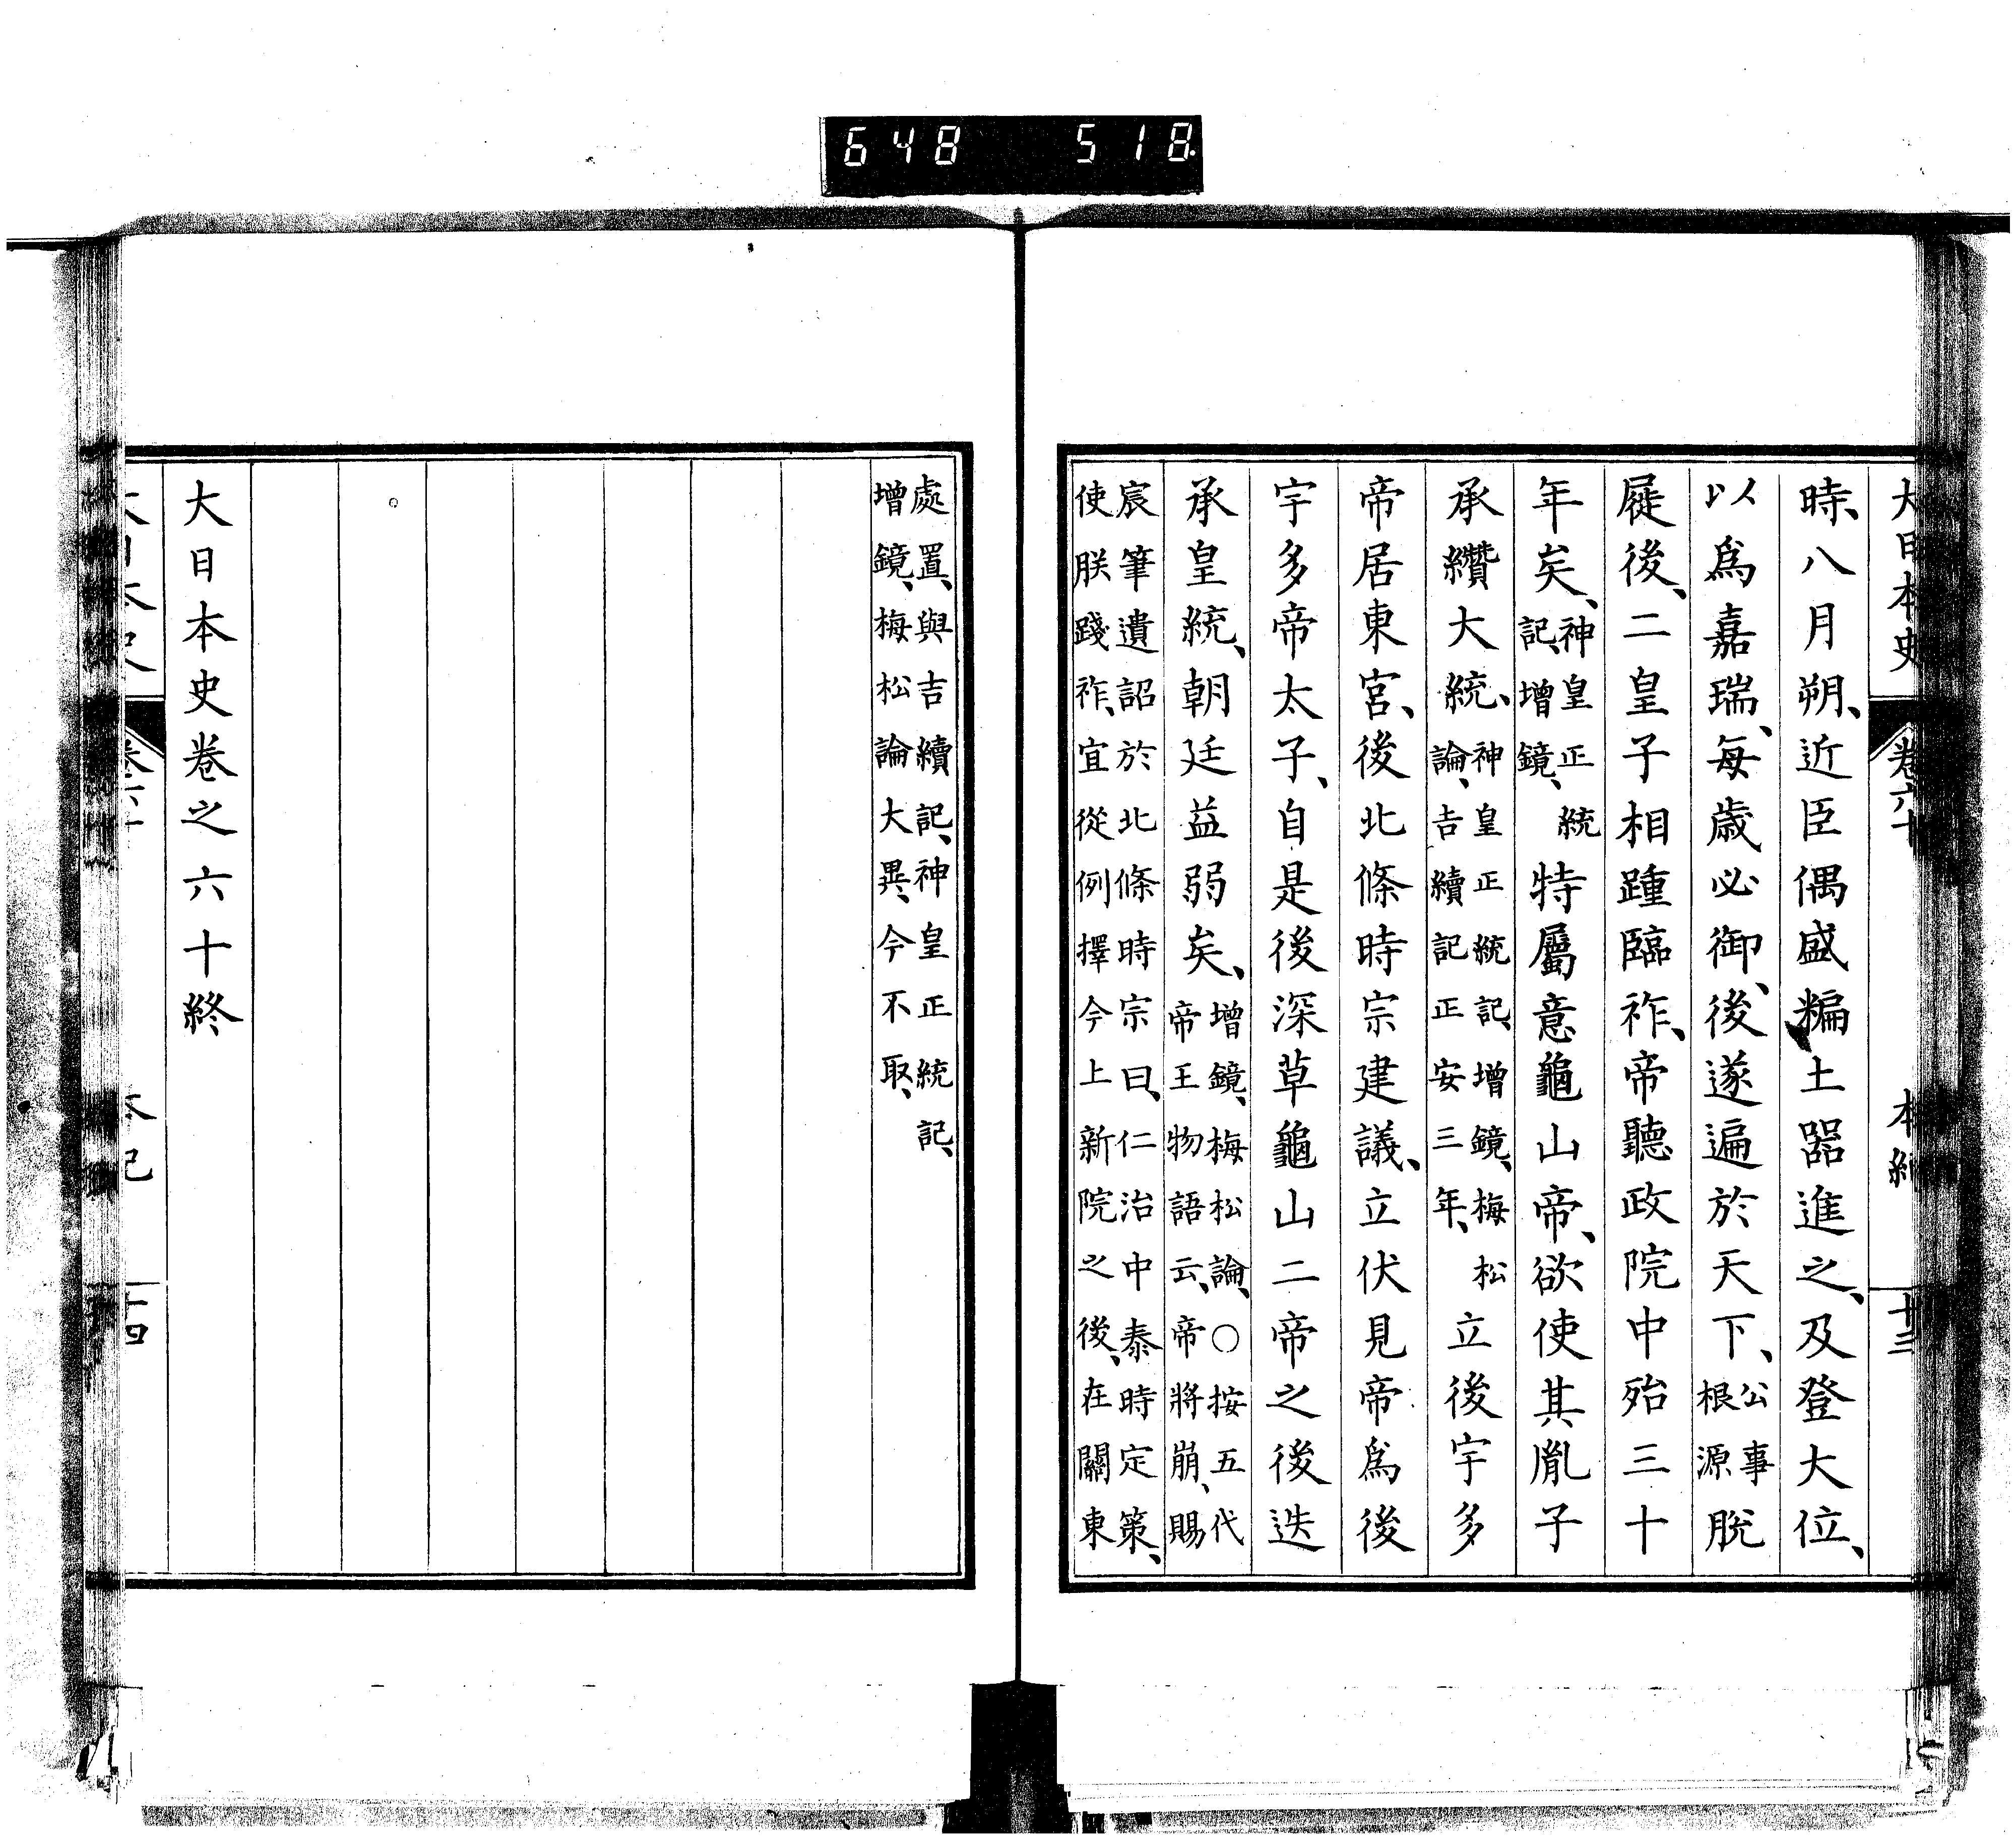 648 518
大日本史 卷六十 本紀 十三
時、八月朔、近臣偶盛糄土器進之、及登大位、
以爲嘉瑞、每歲必御、後遂遍於天下、公事根源脫
屣後、二皇子相踵臨祚、帝聽政院中殆三十
年矣、神皇正統記、增鏡、特屬意龜山帝、欲使其胤子
承纘大統、神皇正統記、增鏡、梅松論、吉續記正安三年、立後宇多
帝居東宮、後北條時宗建議、立伏見帝爲後
宇多帝太子、自是後深草龜山二帝之後迭
承皇統、朝廷益弱矣、增鏡、梅松論、○按五代帝王物語云、帝將崩、賜
宸筆遺詔於北條時宗曰、仁治中泰時定策、
使朕踐祚、宜從例擇今上新院之後、在關東
處置、與吉續記、神皇正統記、
增鏡、梅松論大異、今不取、
大日本史卷之六十終
大日本史 卷六十 本紀 十四